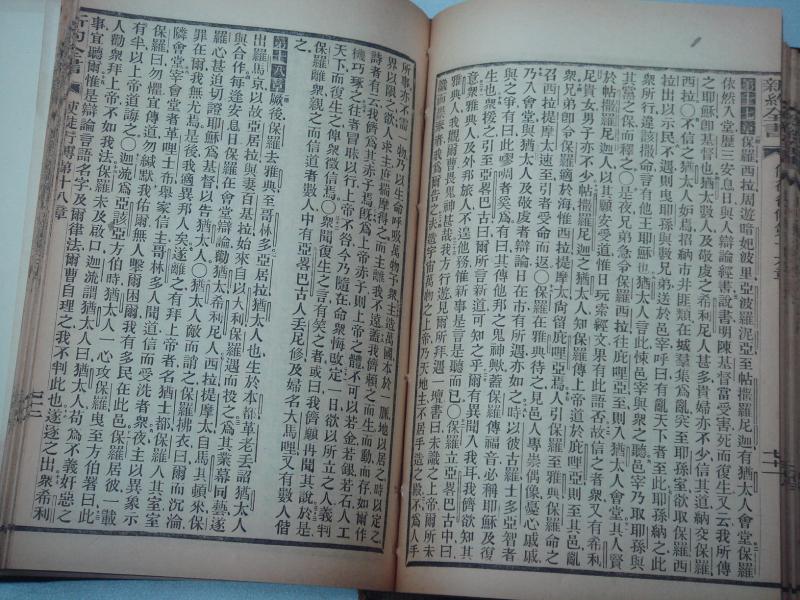 新約全書
第十七章 保羅西拉周遊暗妃波里亞波羅泥亞至帖撒羅尼迦有猶太人會堂保羅
依然入堂歷三安息日與人辯論經書說書明陳基督當受害死而復生又云我所傳
之耶穌卽基督也猶太數人及敬虔之希利尼人甚多貴婦亦不少信其道納交保羅
西拉〇不信之猶太人妒焉招納市井匪類在城羣集爲亂突至耶孫室欲取保羅西
拉出以示民不遇則曳耶孫與數兄弟送於邑宰呼曰有亂天下者至此耶孫納之此
衆所行違該撒命言有他王耶穌也猶太人言此悚邑宰與衆之聽邑宰乃取耶孫與
其黨之保而釋之〇是夜兄弟急令保羅西拉往庇哩亞至則入猶太人會堂其人賢
於帖撒羅尼迦之猶太人以其願安受道惟日玩索經文果有此語否故信之者衆又有希利
尼貴女男子亦不少帖撒羅尼迦之猶太人知保羅傳上帝道於庇哩亞則至其邑亂
衆兄弟卽令保羅適於海惟西拉提摩太尚留庇哩亞焉人引保羅至雅典保羅命之
召西拉提摩太速至引者受命而返〇保羅在雅典待之見邑人專崇偶像憂心戚戚
乃入會堂與猶太人及敬虔者辯論日在市有所遇亦如之時以彼古羅士多亞智者
與之爭有曰此嘐嘐者奚爲有曰其傳他邦之鬼神歟蓋保羅傳福音必稱耶穌及復
生也衆援之引至亞畧巴古曰爾所言新道可知之乎爾有異聞入我耳我儕欲知其
意衆雅典人及外邦旅人不遑他務惟新事是言是聽而已〇保羅立亞畧巴古中曰
雅典人我觀爾曹畏鬼神甚哉我方行遊見爾所拜遇一壇書曰未識之上帝爾所未
識而拜者我爲爾告之夫造宇宙萬物之上帝乃天地主不居人手所造之殿不爲人手
所事亦不需一物乃以生命呼吸萬物予衆主造萬國本於一脈地以居之時以定之
界以限之欲人求主庶揣摩得之而主離我不遠蓋我儕賴之而生而動而存如爾作
詩者有云我儕爲其赤子焉旣爲上帝赤子則上帝之體不可以若金若銀若石人工
機巧琢之往者冒昧以行上帝不咎今乃隨在命衆悔改定一日欲以所立之人義判
天下而復生之俾衆徵信焉〇衆聞復生之言有笑之者或曰我儕願再聞其說於是
保羅離衆親之而信道者數人中有亞畧巴古人丟尼修及婦名大馬哩又有數人偕
之
第十八章 厥後保羅去雅典至哥林多亞居拉猶太人也生於本都革老丟詔猶太人
出羅馬京以故亞居拉與妻百基拉始來自以大利保羅遇而投之爲其業幕同藝遂
與合作每逢安息日保羅在會堂辯論勸猶太希利尼人西拉提摩太自馬其頓來保
羅心甚迫切證耶穌爲基督以告猶太人〇猶太人敵而謗之保羅拂衣曰爾而沉淪
罪在爾我無尤焉是後我適異邦人矣遂離之有拜上帝者名猶士都保羅入其室室
隣會堂宰會堂者革哩士布舉家信主哥林多人聞道信而受洗者衆夜主以異象示
保羅曰勿懼宜傳道勿緘默我佑爾無人擊爾困爾我有多民在此邑保羅居彼一載
有半以上帝道誨之〇迦流爲亞該亞方伯時猶太人一心攻保羅曳至方伯署曰此
人勸衆拜上帝不如我法保羅未及啟口迦流謂猶太人曰猶太人苟爲不義奸惡之
事宜聽爾惟是辯論言語名字及爾律法爾曹自理之我不判此也遂逐之出衆希利
新約全書 使徒行傳第十八章